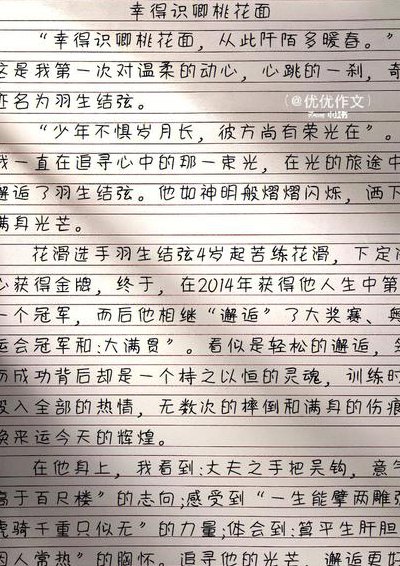 幸得识卿桃花面
“幸得识卿桃花面，从此阡陌多暖春。”
这是我第一次对温柔的动心，心跳的一刹，奇
迹名为羽生结弦。
(@优优作文)
小红书
“少年不惧岁月长，彼方尚有荣光在”。
我一直在追寻心中的那一束光，在光的旅途中
邂逅了羽生结弦。他如神明般熠熠闪烁，洒下
满身光芒。
花滑选手羽生结弦4岁起苦练花滑，下定决
心获得金牌，终于，在2014年获得他人生中第
一个冠军，而后他相继“邂逅”了大奖赛、奥
运会冠军和:大满贯”。看似是轻松的邂逅，
而成功背后却是一个持之以恒的灵魂，训练时
投入全部的热情，无数次的摔倒和满身的伤痕
换来运今天的辉煌。
在他身上，我看到:丈夫之手把吴钩，意气
高于百尺楼”的志向;感受到“一生能擘两雕弧
虎骑千重只似无”的力量;体会到:算平生肝胆
因人常热”的胸怀。追寻他的光芒，邂逅更好